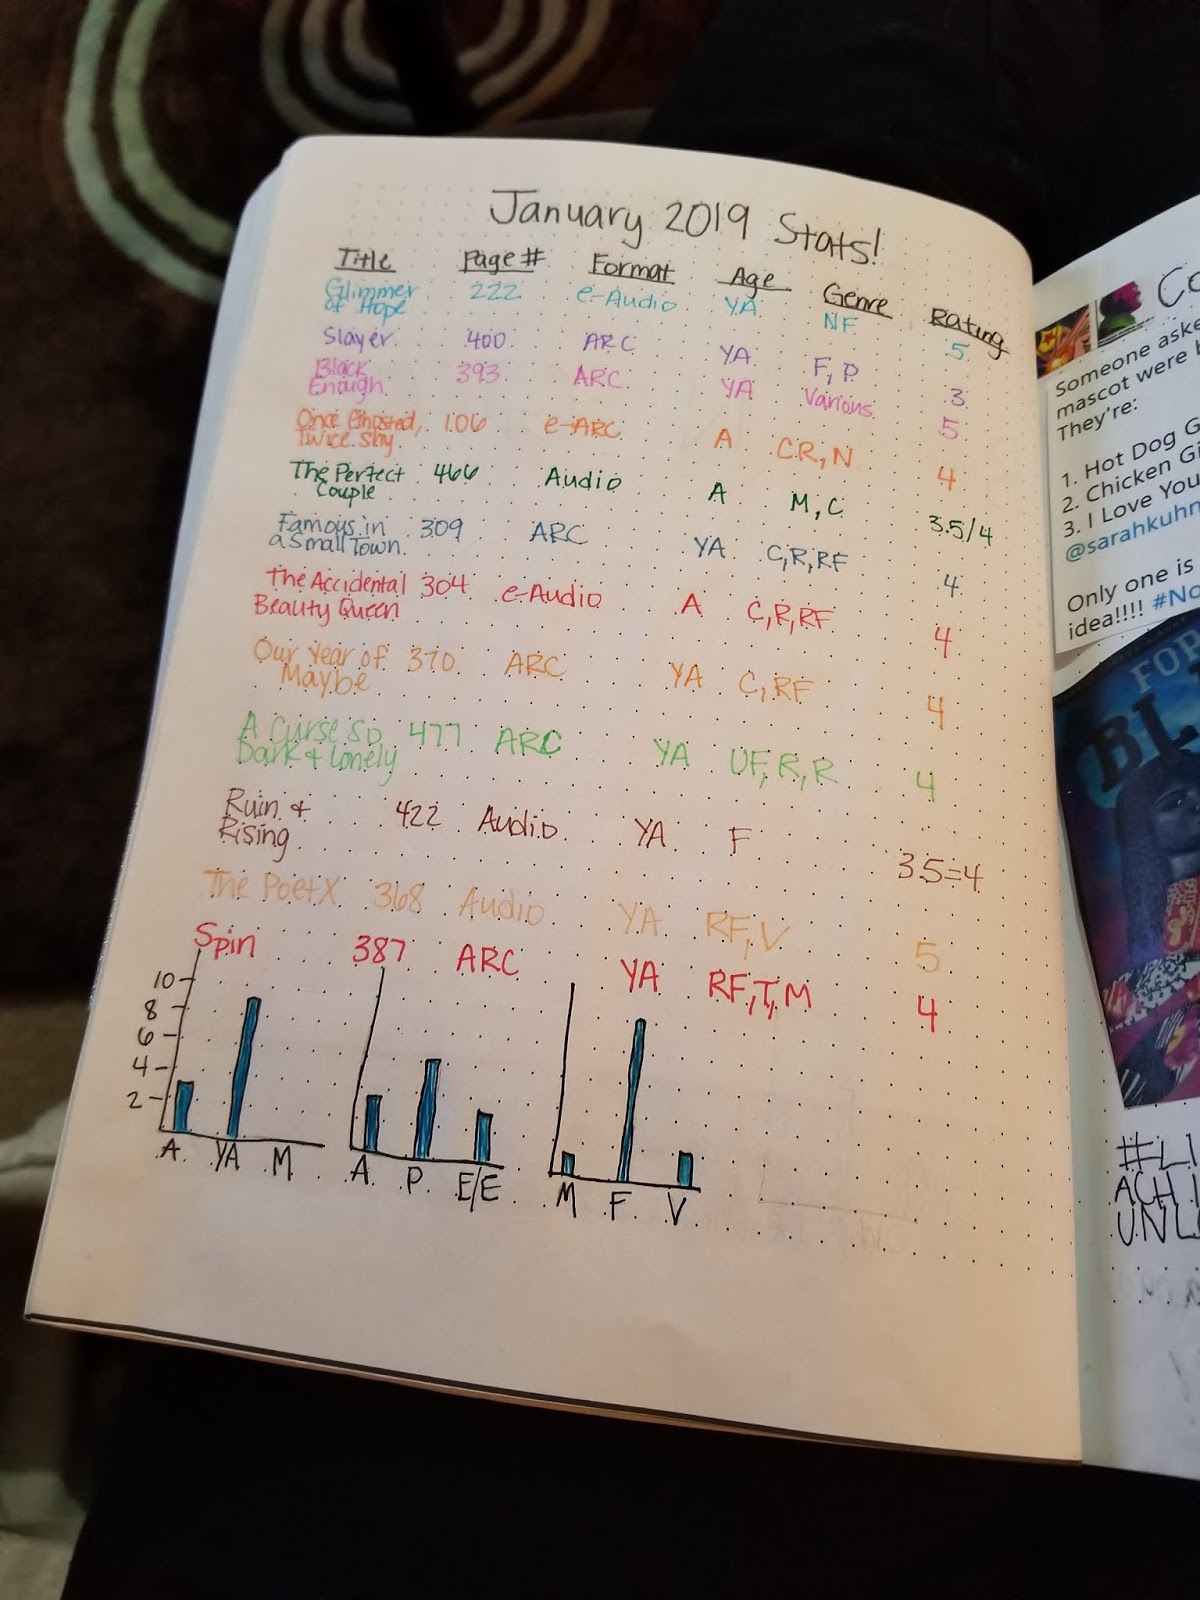 January 2019 Stats!
Title Page # Format Age Genre Rating
Glimmer of Hope 222 e-Audio YA NF 5
Slayer 400 ARC YA F, P 3
Black Enough 393 ARC YA Various 5
Once Ghosted, Twice Shy 106 e-ARC A CR, N 4
The Perfect Couple 466 Audio A M, C 3.5/4
Famous in a Small Town 309 ARC YA C, R, RF 4
The Accidental Beauty Queen 304 e-Audio A C, R, RF 4
Our Year of Maybe 370 ARC YA C, RF 4
A Curse So Dark & Lonely 477 ARC YA UF, R, R 4
Ruin & Rising 422 Audio YA F 3.5=4
The Poet X 368 Audio YA RF, V 5
Spin 387 ARC YA RF, T, M 4
10
8
6
4
2
A YA M
A P E/E
M F V
Someone aske
mascot were
They're:
1. Hot Dog G
2. Chicken Gi
3. I Love You
@sarahkuhn
Only one is
idea!!!! #No
FOR
BL
#LI
ACH
UNL